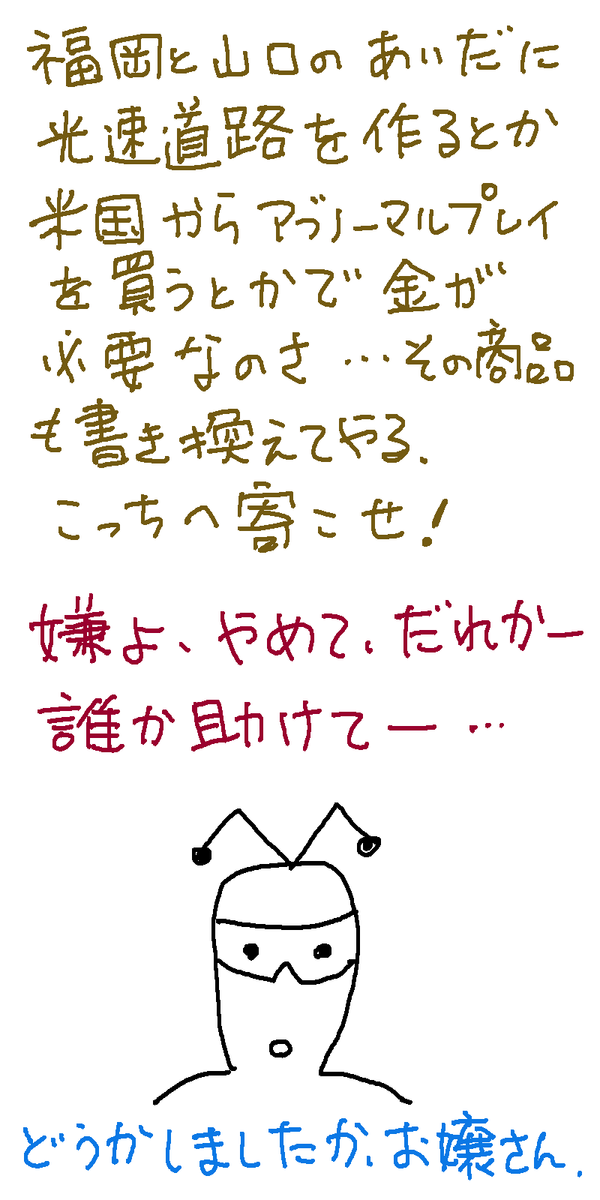 福岡と山口のあいだに
光速道路を作るとか
米国からアブノーマルプレイ
を買うとかで金が
必要なのさ…その商品
も書き換えてやる.
こっちへ寄こせ!
嫌よ、やめて、だれかー
誰か助けてー…
どうかしましたか、お嬢さん.